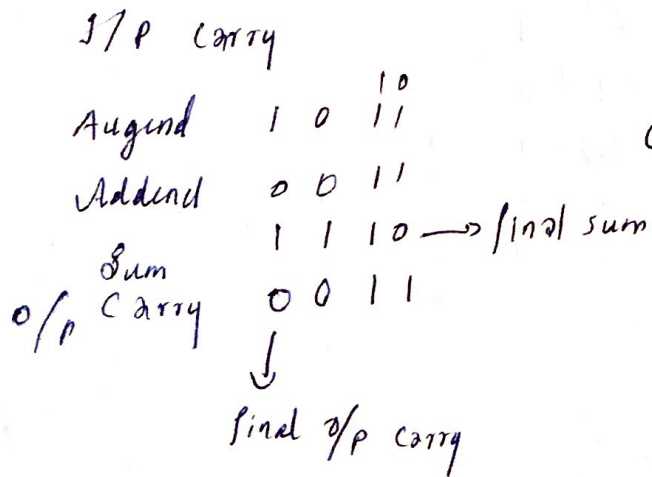 I/P Carry
1 0
Augend 1 0 1 1
Addend 0 0 1 1
1 1 1 0 → final sum
Sum
O/p Carry 0 0 1 1
↓
final O/p Carry